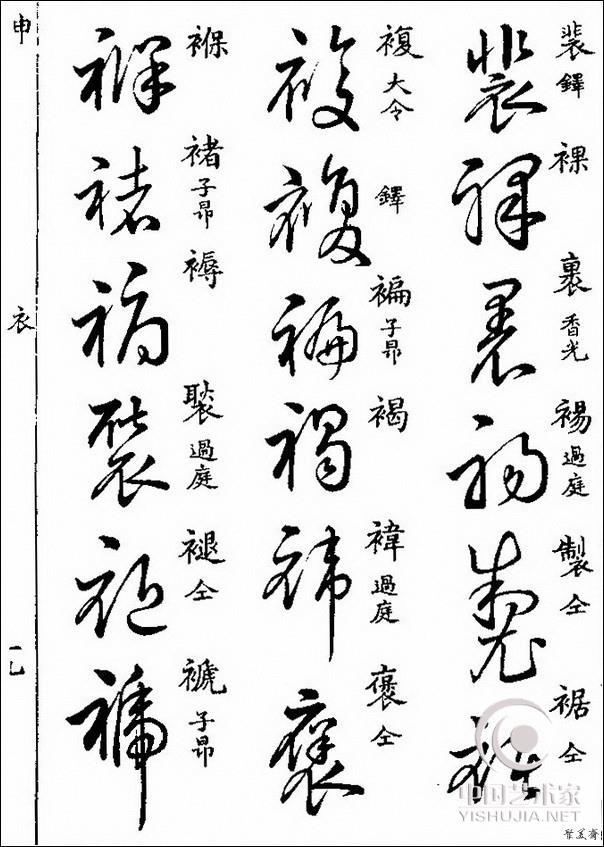 裴 鐸
裸
裹 香光
裼 過庭
製 仝
裾 仝
複 大令
鐸
褊 子昂
褐
褘 過庭
褒 仝
褓
褚 子昂
褥
褧 過庭
褪 仝
褫 子昂
申
衣
中国艺术家
YISHUJIA.NET